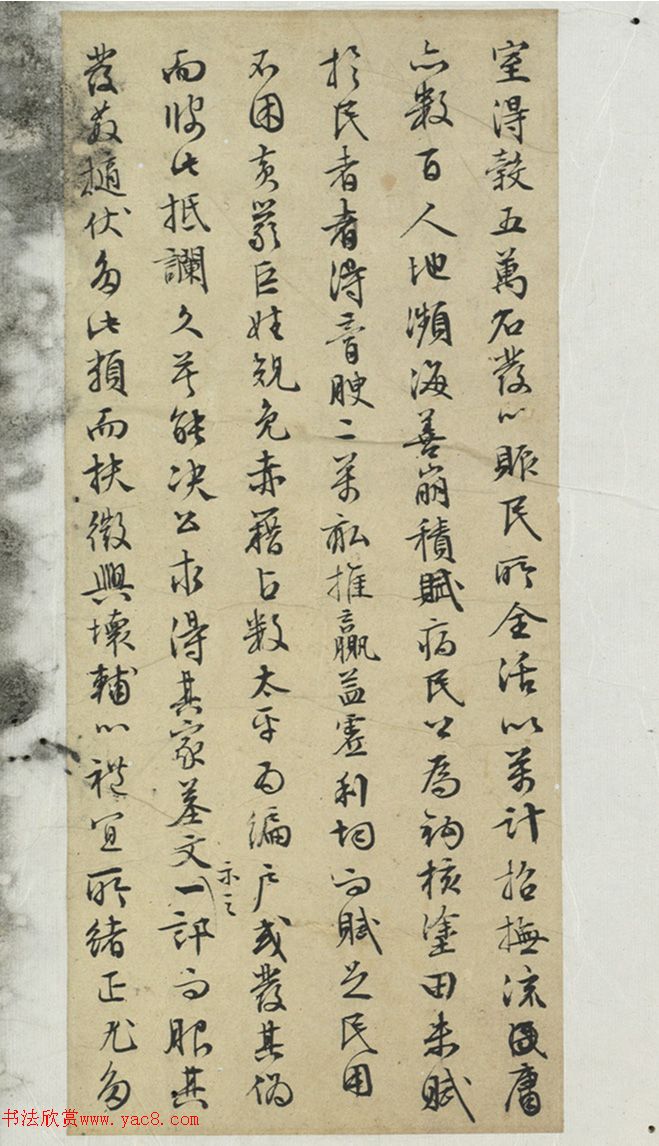 室得穀五萬石發以賑民所全活以萬計招撫流民庸
亦數百人地瀕海善崩積賦病民公為鉤核塗田未賦
於民者得膏腴二萬畝推贏益虛利均而賦足民用
不困黃巖巨姓規免赤籍占數太平為編戶或發其偽
而彼此抵讕久莫能決公求得其家墓文示之一訊而服其
發敖擿伏多此類而扶微興壞輔以禮宜所緒正尤多
书法欣赏www.yac8.com